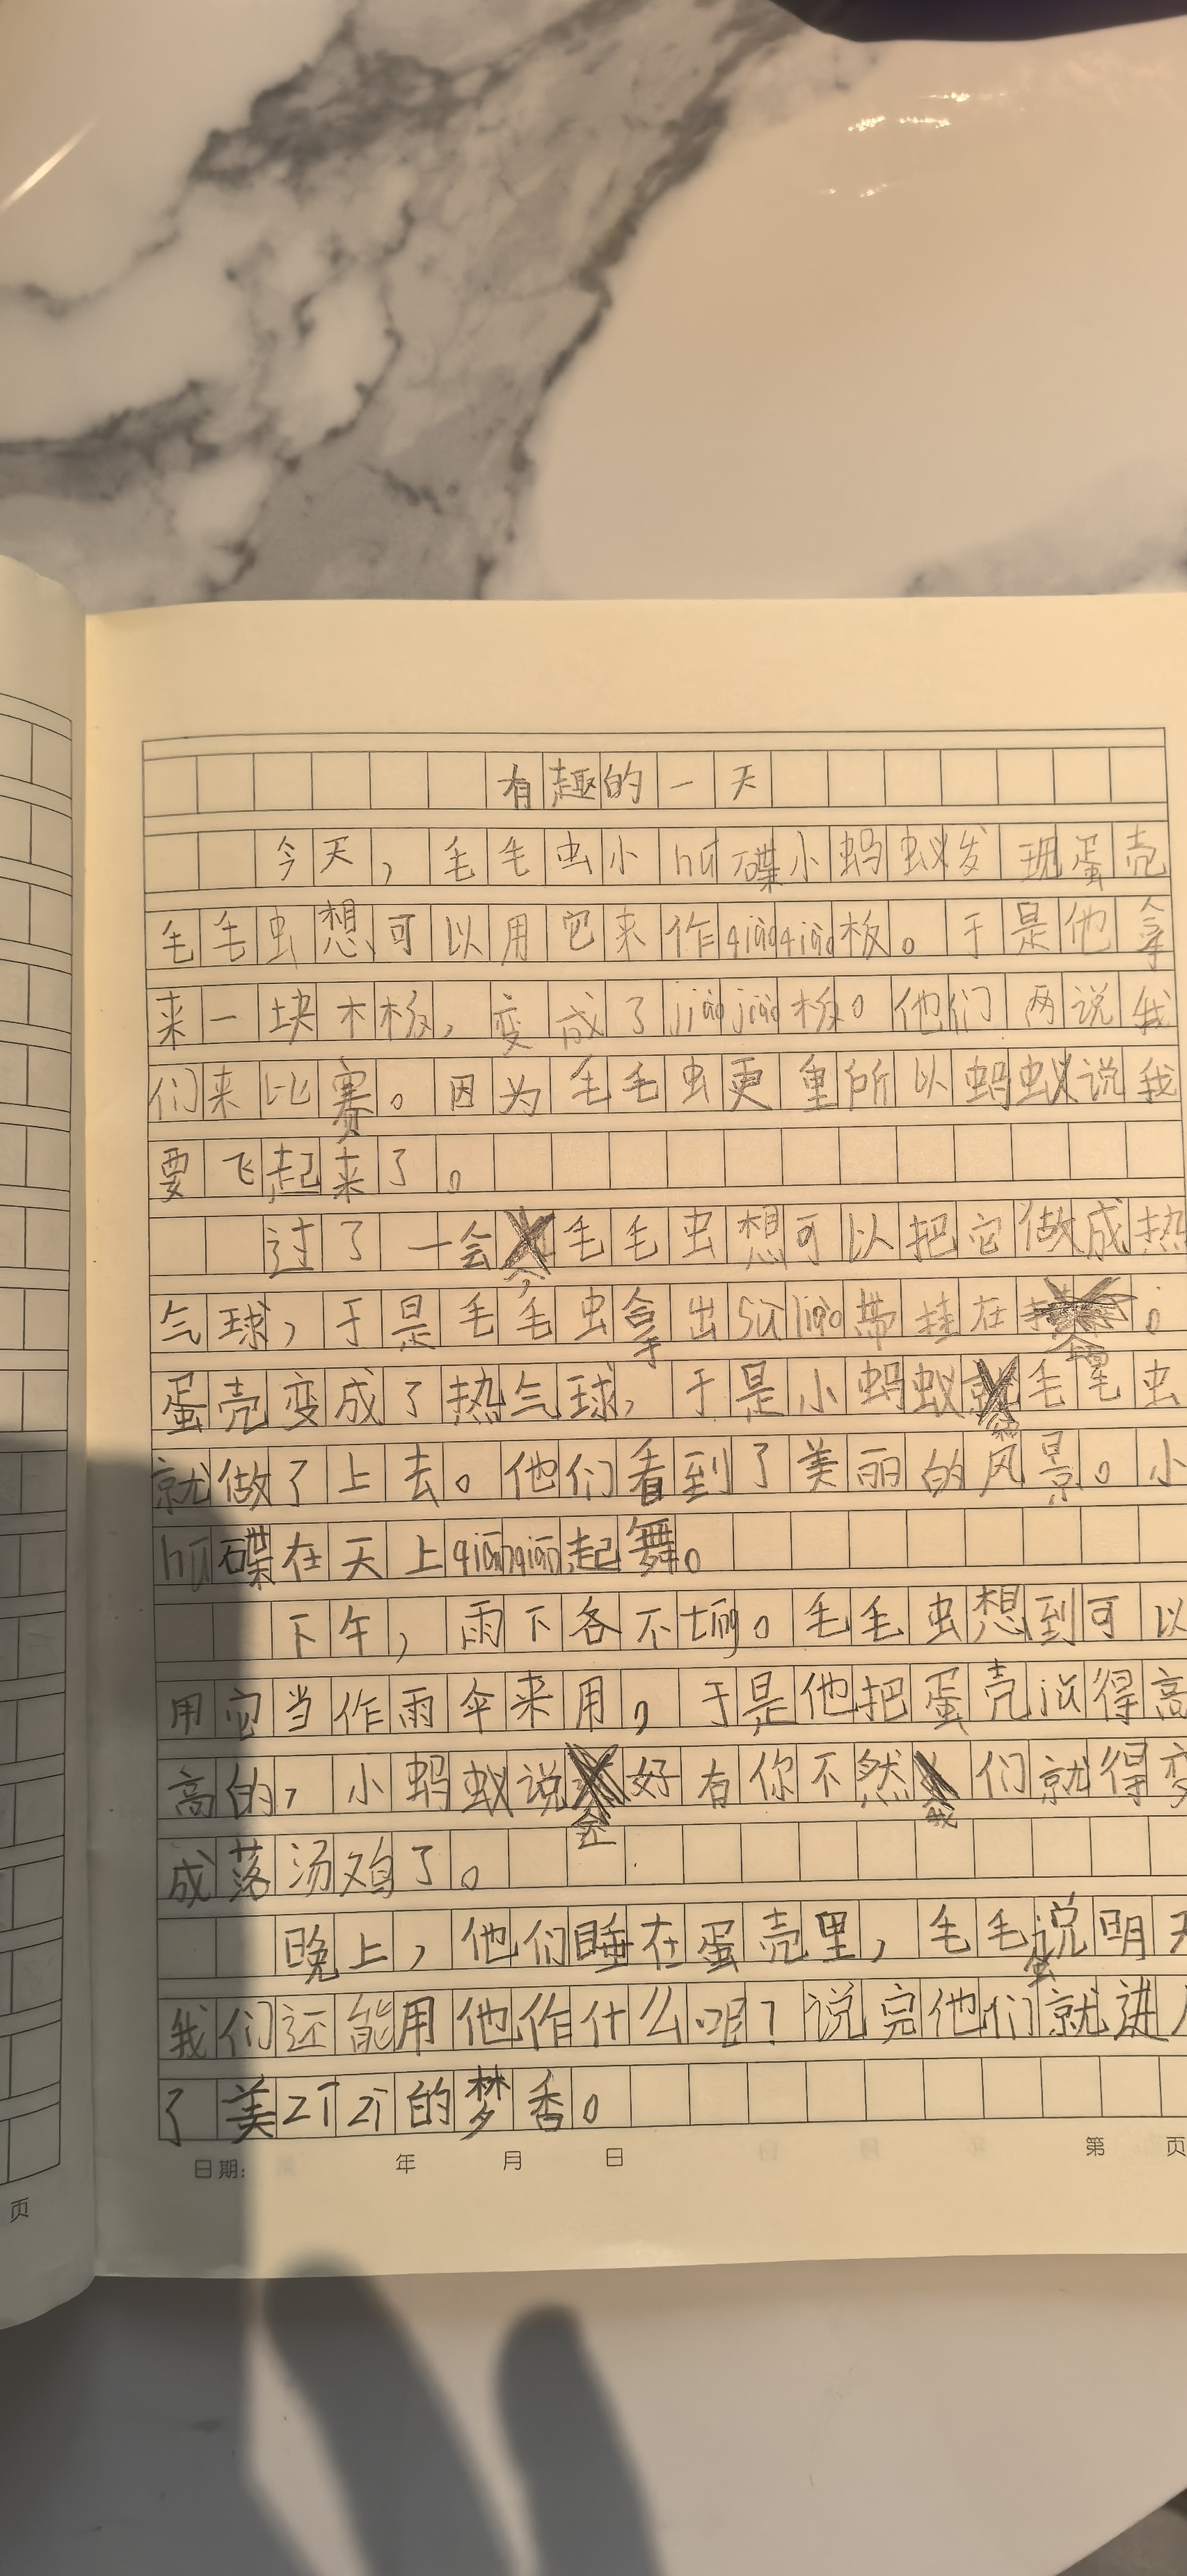 有趣的一天
今天，毛毛虫小hú碟小蚂蚁发现蛋壳
毛毛虫想可以用它来作qiāoqiāo板。于是他拿
来一块木板，变成了jiāojiāo板。他们两说我
们来比赛。因为毛毛虫更重所以蚂蚁说我
要飞起来了。
过了一会今毛毛虫想可以把它做成热
气球，于是毛毛虫拿出sùliào带挂在。
蛋壳变成了热气球，于是小蚂蚁和毛毛虫
就做了上去。他们看到了美丽的风景。小
hú碟在天上qiānqiān起舞。
下午，雨下各不tíng。毛毛虫想到可以
用它当作雨伞来用，于是他把蛋壳jǔ得高
高的，小蚂蚁说还好有你不然我们就得变
成落汤鸡了。
晚上，他们睡在蛋壳里，毛毛虫说明天
我们还能用他作什么呢？说完他们就进入
了美zīzī的梦香。
日期： 年 月 日 第 页
页